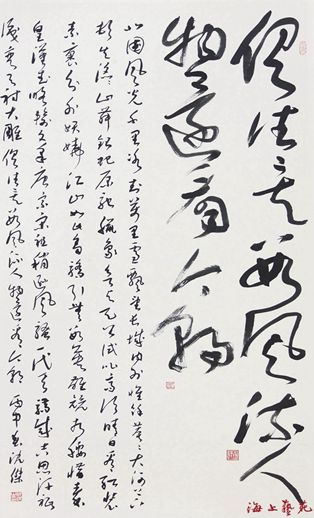 俱往矣數風流人
物還看今朝
北國風光千里冰封萬里雪飄望長城内外惟餘莽莽大河上下
頓失滔滔山舞銀蛇原馳蠟象欲與天公試比高須晴日看紅裝
素裹分外妖嬈江山如此多嬌引無數英雄競折腰惜秦
皇漢武略輸文采唐宗宋祖稍遜風騷一代天驕成吉思汗祇
識彎弓射大雕俱往矣數風流人物還看今朝 丙申 沈傑
海上藝苑